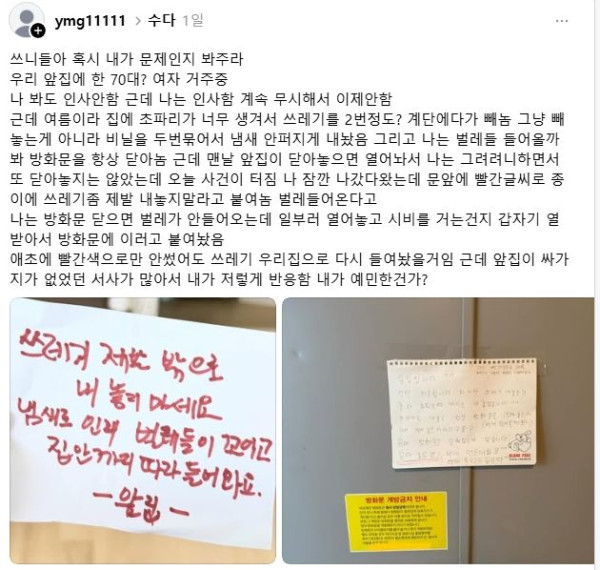 ymg11111 > 수다 1일
쓰니들아 혹시 내가 문제인지 봐주라
우리 앞집에 한 70대? 여자 거주중
나 봐도 인사안함 근데 나는 인사함 계속 무시해서 이제안함
근데 여름이라 집에 초파리가 너무 생겨서 쓰레기를 2번정도? 계단에다가 빼놈 그냥 빼
놓는게 아니라 비닐을 두번묶어서 냄새 안퍼지게 내놨음 그리고 나는 벌레들 들어올까
봐 방화문을 항상 닫아놈 근데 맨날 앞집이 닫아놓으면 열어놔서 나는 그려려니하면서
또 닫아놓지는 않았는데 오늘 사건이 터짐 나 잠깐 나갔다왔는데 문앞에 빨간글씨로 종
이에 쓰레기좀 제발 내놓지말라고 붙여놈 벌레들어온다고
나는 방화문 닫으면 벌레가 안들어오는데 일부러 열어놓고 시비를 거는건지 갑자기 열
받아서 방화문에 이러고 붙여놨음
애초에 빨간색으로만 안썼어도 쓰레기 우리집으로 다시 들여놨을거임 근데 앞집이 싸가
지가 없었던 서사가 많아서 내가 저렇게 반응함 내가 예민한건가?
쓰레기 제발 밖으로
내 놓지 마세요
냄새로 인해 벌레들이 꼬이고
집안까지 따라 들어와요.
- 앞집 -
방화문 개방금지 안내